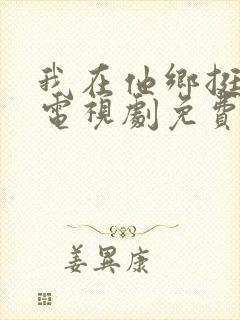 我在他鄉挺
電視劇免費
姜異康